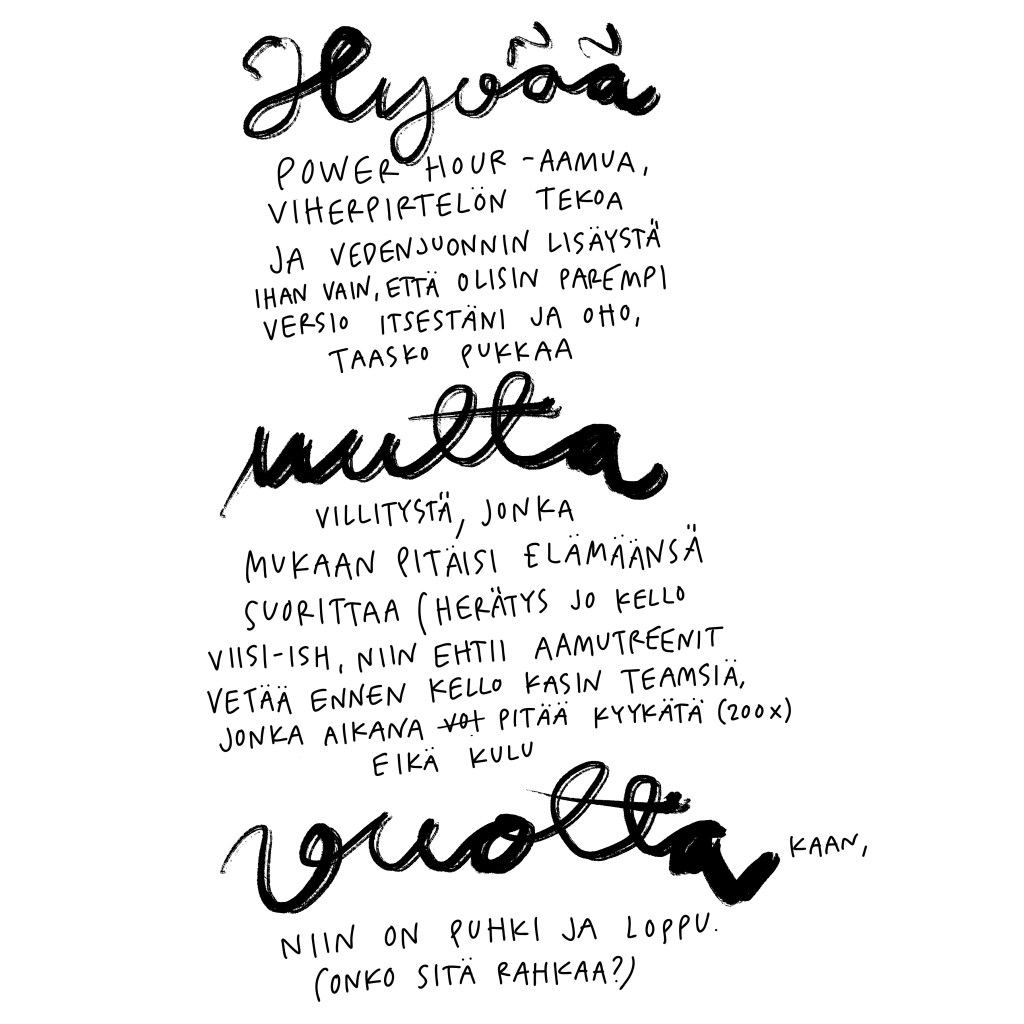 Hyvää
POWER HOUR -AAMUA,
VIHERPIRTELÖN TEKOA
JA VEDENJUONNIN LISÄYSTÄ
IHAN VAIN, ETTÄ OLISIN PAREMPI
VERSIO ITSESTÄNI JA OHO,
TAASKO PUKKAA
uutta
VILLITYSTÄ, JONKA
MUKAAN PITÄISI ELÄMÄÄNSÄ
SUORITTAA (HERÄTYS JO KELLO
VIISI-ISH, NIIN EHTII AAMUTREENIT
VETÄÄ ENNEN KELLO KASIN TEAMSIÄ,
JONKA AIKANA VOT PITÄÄ KYYKÄTÄ (200X)
EIKÄ KULU
vuotta KAAN,
NIIN ON PUHKI JA LOPPU.
(ONKO SITÄ RAHKAA?)